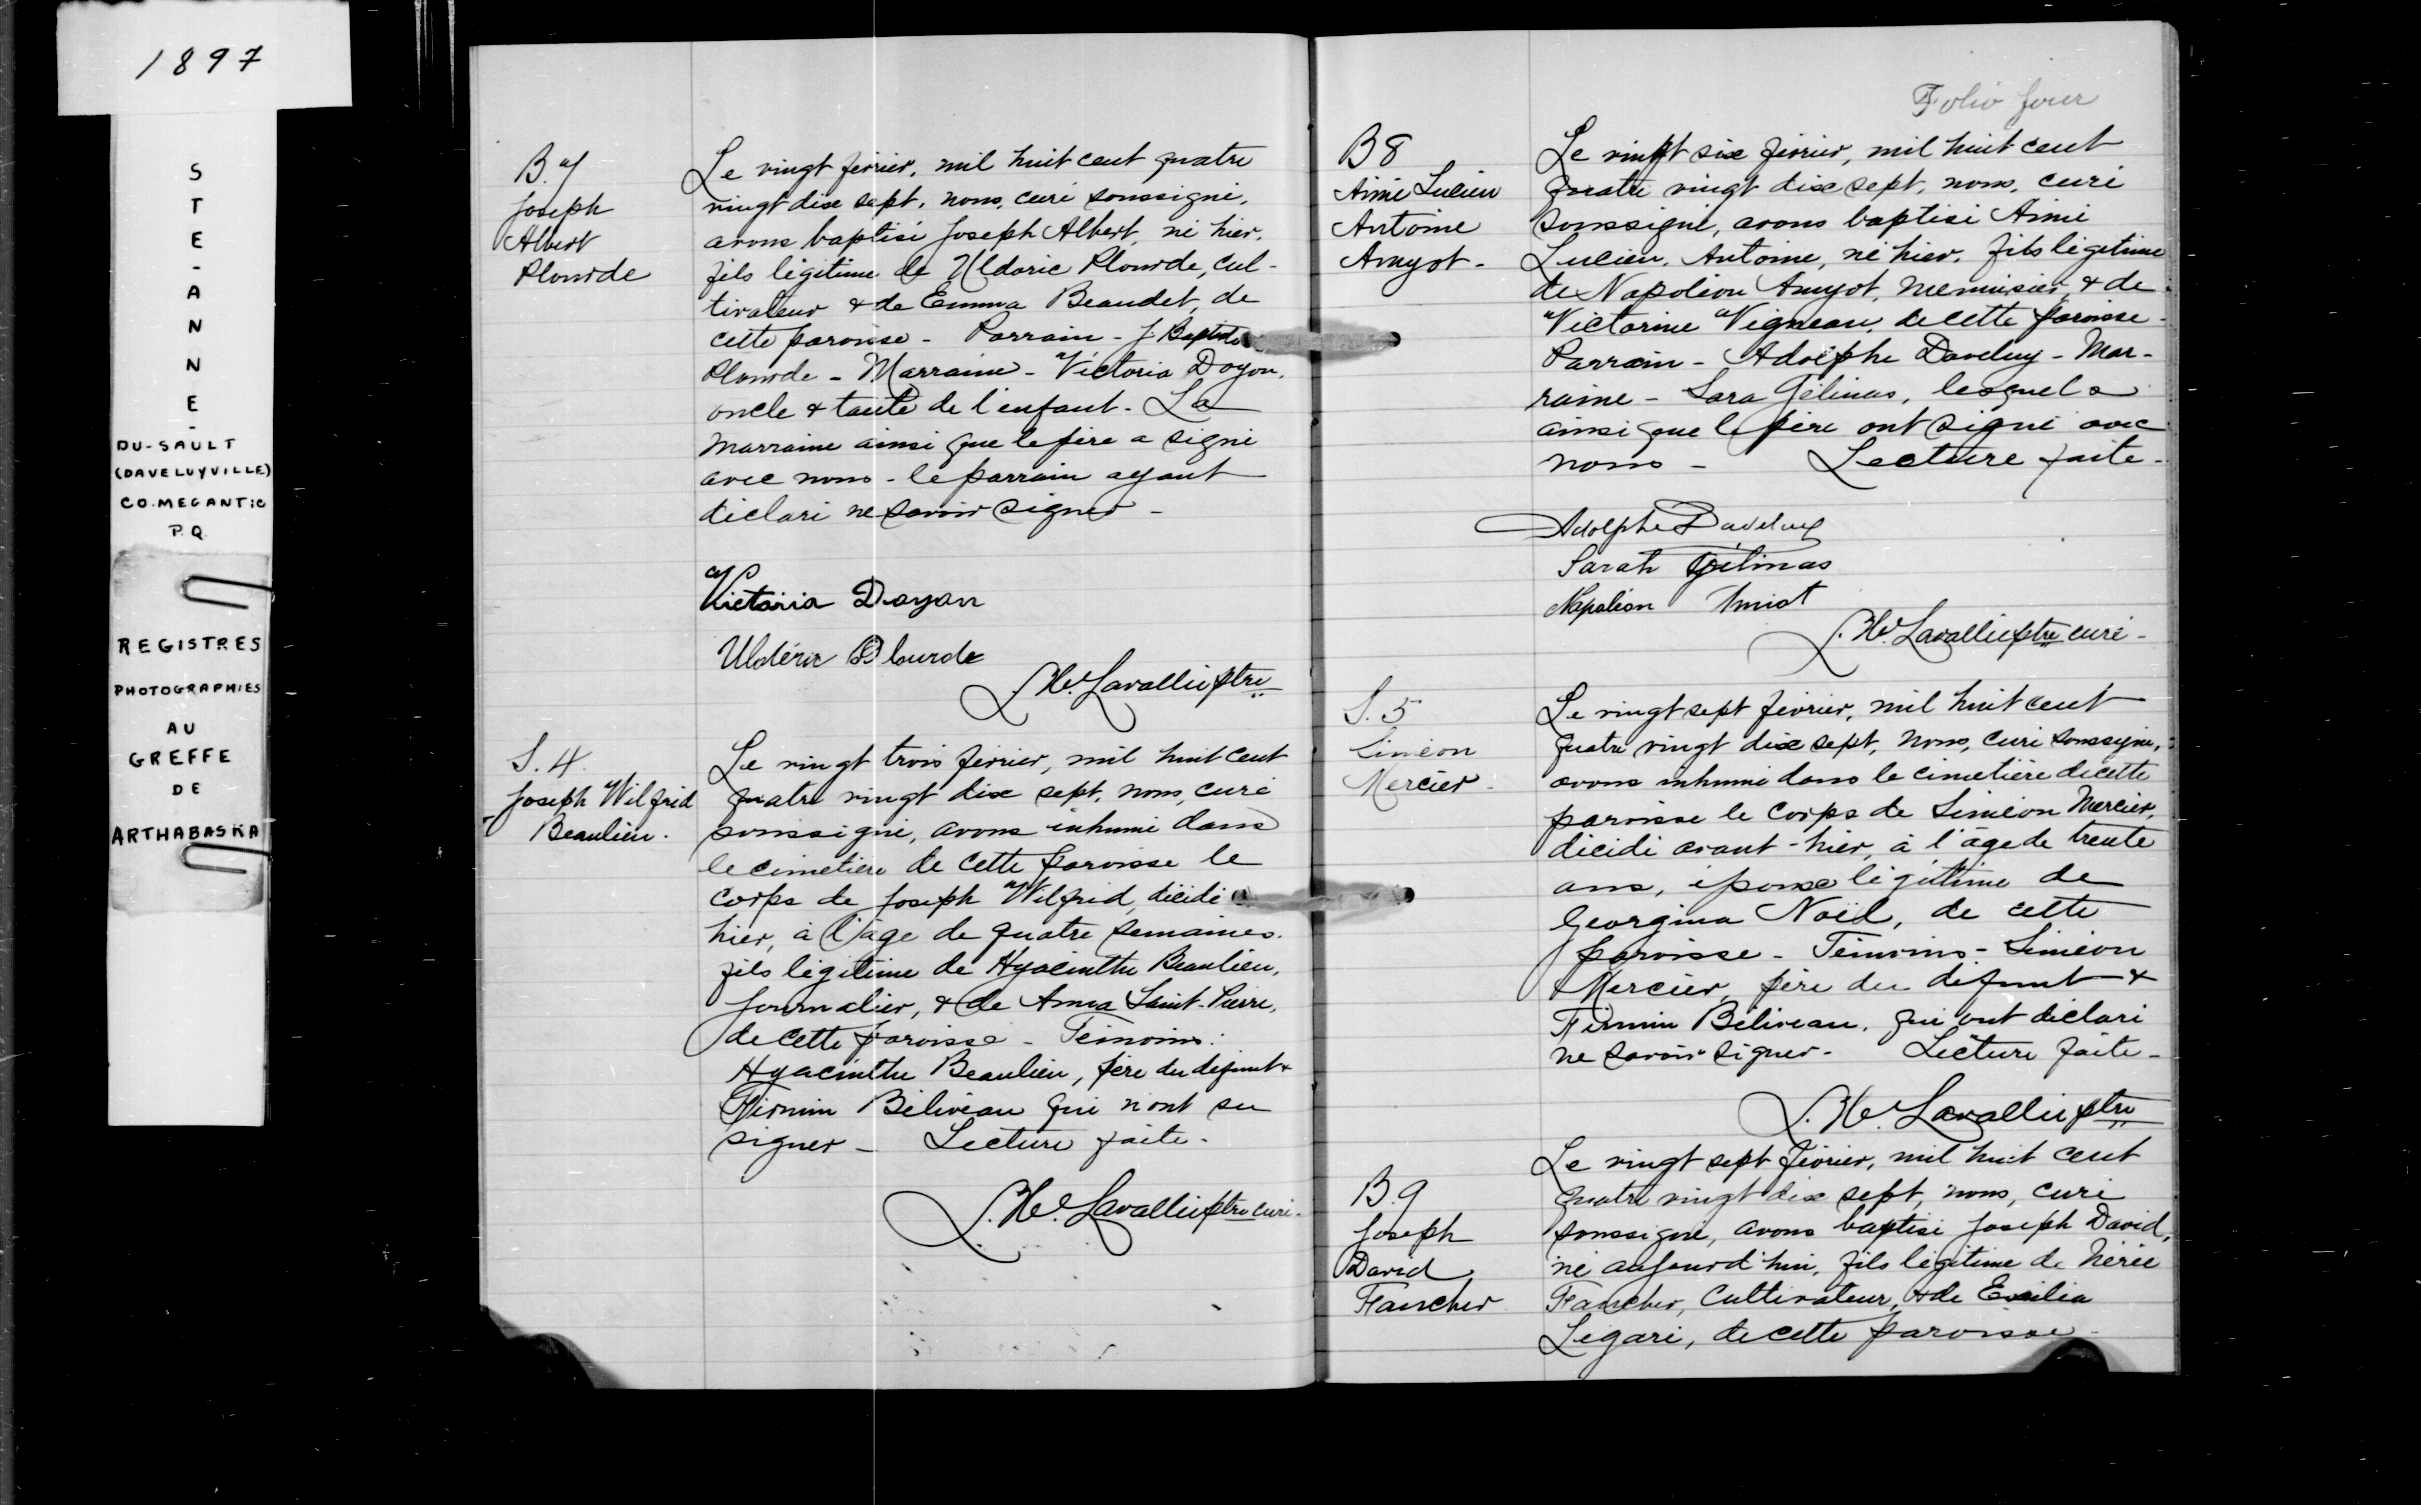 1897
STE-ANNE-
DU-SAULT
(DAVELUYVILLE)
CO. MEGANTIC
P.Q.
REGISTRES
PHOTOGRAPHIES
AU
GREFFE
DE
ARTHABASKA
B. 7
Joseph
Albert
Plourde
Le vingt février, mil huit cent quatre
vingt dix sept, nous, curé soussigné,
avons baptisé Joseph Albert, né hier,
fils légitime de Uldoric Plourde, cul-
tivateur & de Emma Beaudet, de
cette paroisse - Parrain - J. Baptiste
Plourde - Marraine - Victoria Doyon,
oncle & tante de l'enfant. La
marraine ainsi que le père a signé
avec nous - le parrain ayant
déclaré ne savoir signer -
Victoria Doyon
Uldéric Plourde
L. He. Lavallée ptre
S. 4.
Joseph Wilfrid
Beaulieu.
Le vingt trois février, mil huit cent
quatre vingt dix sept, nous, curé
soussigné, avons inhumé dans
le cimetière de cette paroisse le
corps de Joseph Wilfrid, décédé
hier, à l'âge de quatre semaines.
fils légitime de Hyacinthe Beaulieu,
journalier, & de Anna Saint-Pierre,
de cette paroisse - Témoins:
Hyacinthe Beaulieu, père du défunt &
Firmin Béliveau qui n'ont su
signer - Lecture faite.
L. He. Lavallée ptre curé.
Folio four
B 8
Aimé Lucien
Antoine
Amyot -
Le vingt six février, mil huit cent
quatre vingt dix sept, nous, curé
soussigné, avons baptisé Aimé
Lucien, Antoine, né hier, fils légitime
de Napoléon Amyot, menuisier, & de
Victorine Vigneau, de cette paroisse -
Parrain - Adolphe Daveluy - Mar-
raine - Sara Gélinas, lesquels
ainsi que le père ont signé avec
nous - Lecture faite -
Adolphe Daveluy
Sarah Gélinas
Napoléon Amiot
L. He. Lavallée ptre curé -
S. 5
Siméon
Mercier -
Le vingt sept février, mil huit cent
quatre vingt dix sept, nous, curé soussigné,
avons inhumé dans le cimetière de cette
paroisse le corps de Siméon Mercier,
décédé avant-hier, à l'âge de trente
ans, époux légitime de
Georgina Noël, de cette
paroisse - Témoins - Siméon
Mercier, père du défunt &
Firmin Béliveau, qui ont déclaré
ne savoir signer - Lecture faite -
L. He. Lavallée ptre
B. 9
Joseph
David
Faucher
Le vingt sept février, mil huit cent
quatre vingt dix sept, nous, curé
soussigné, avons baptisé Joseph David,
né aujourd'hui, fils légitime de Nérée
Faucher, cultivateur, & de Exilia
Légaré, de cette paroisse -